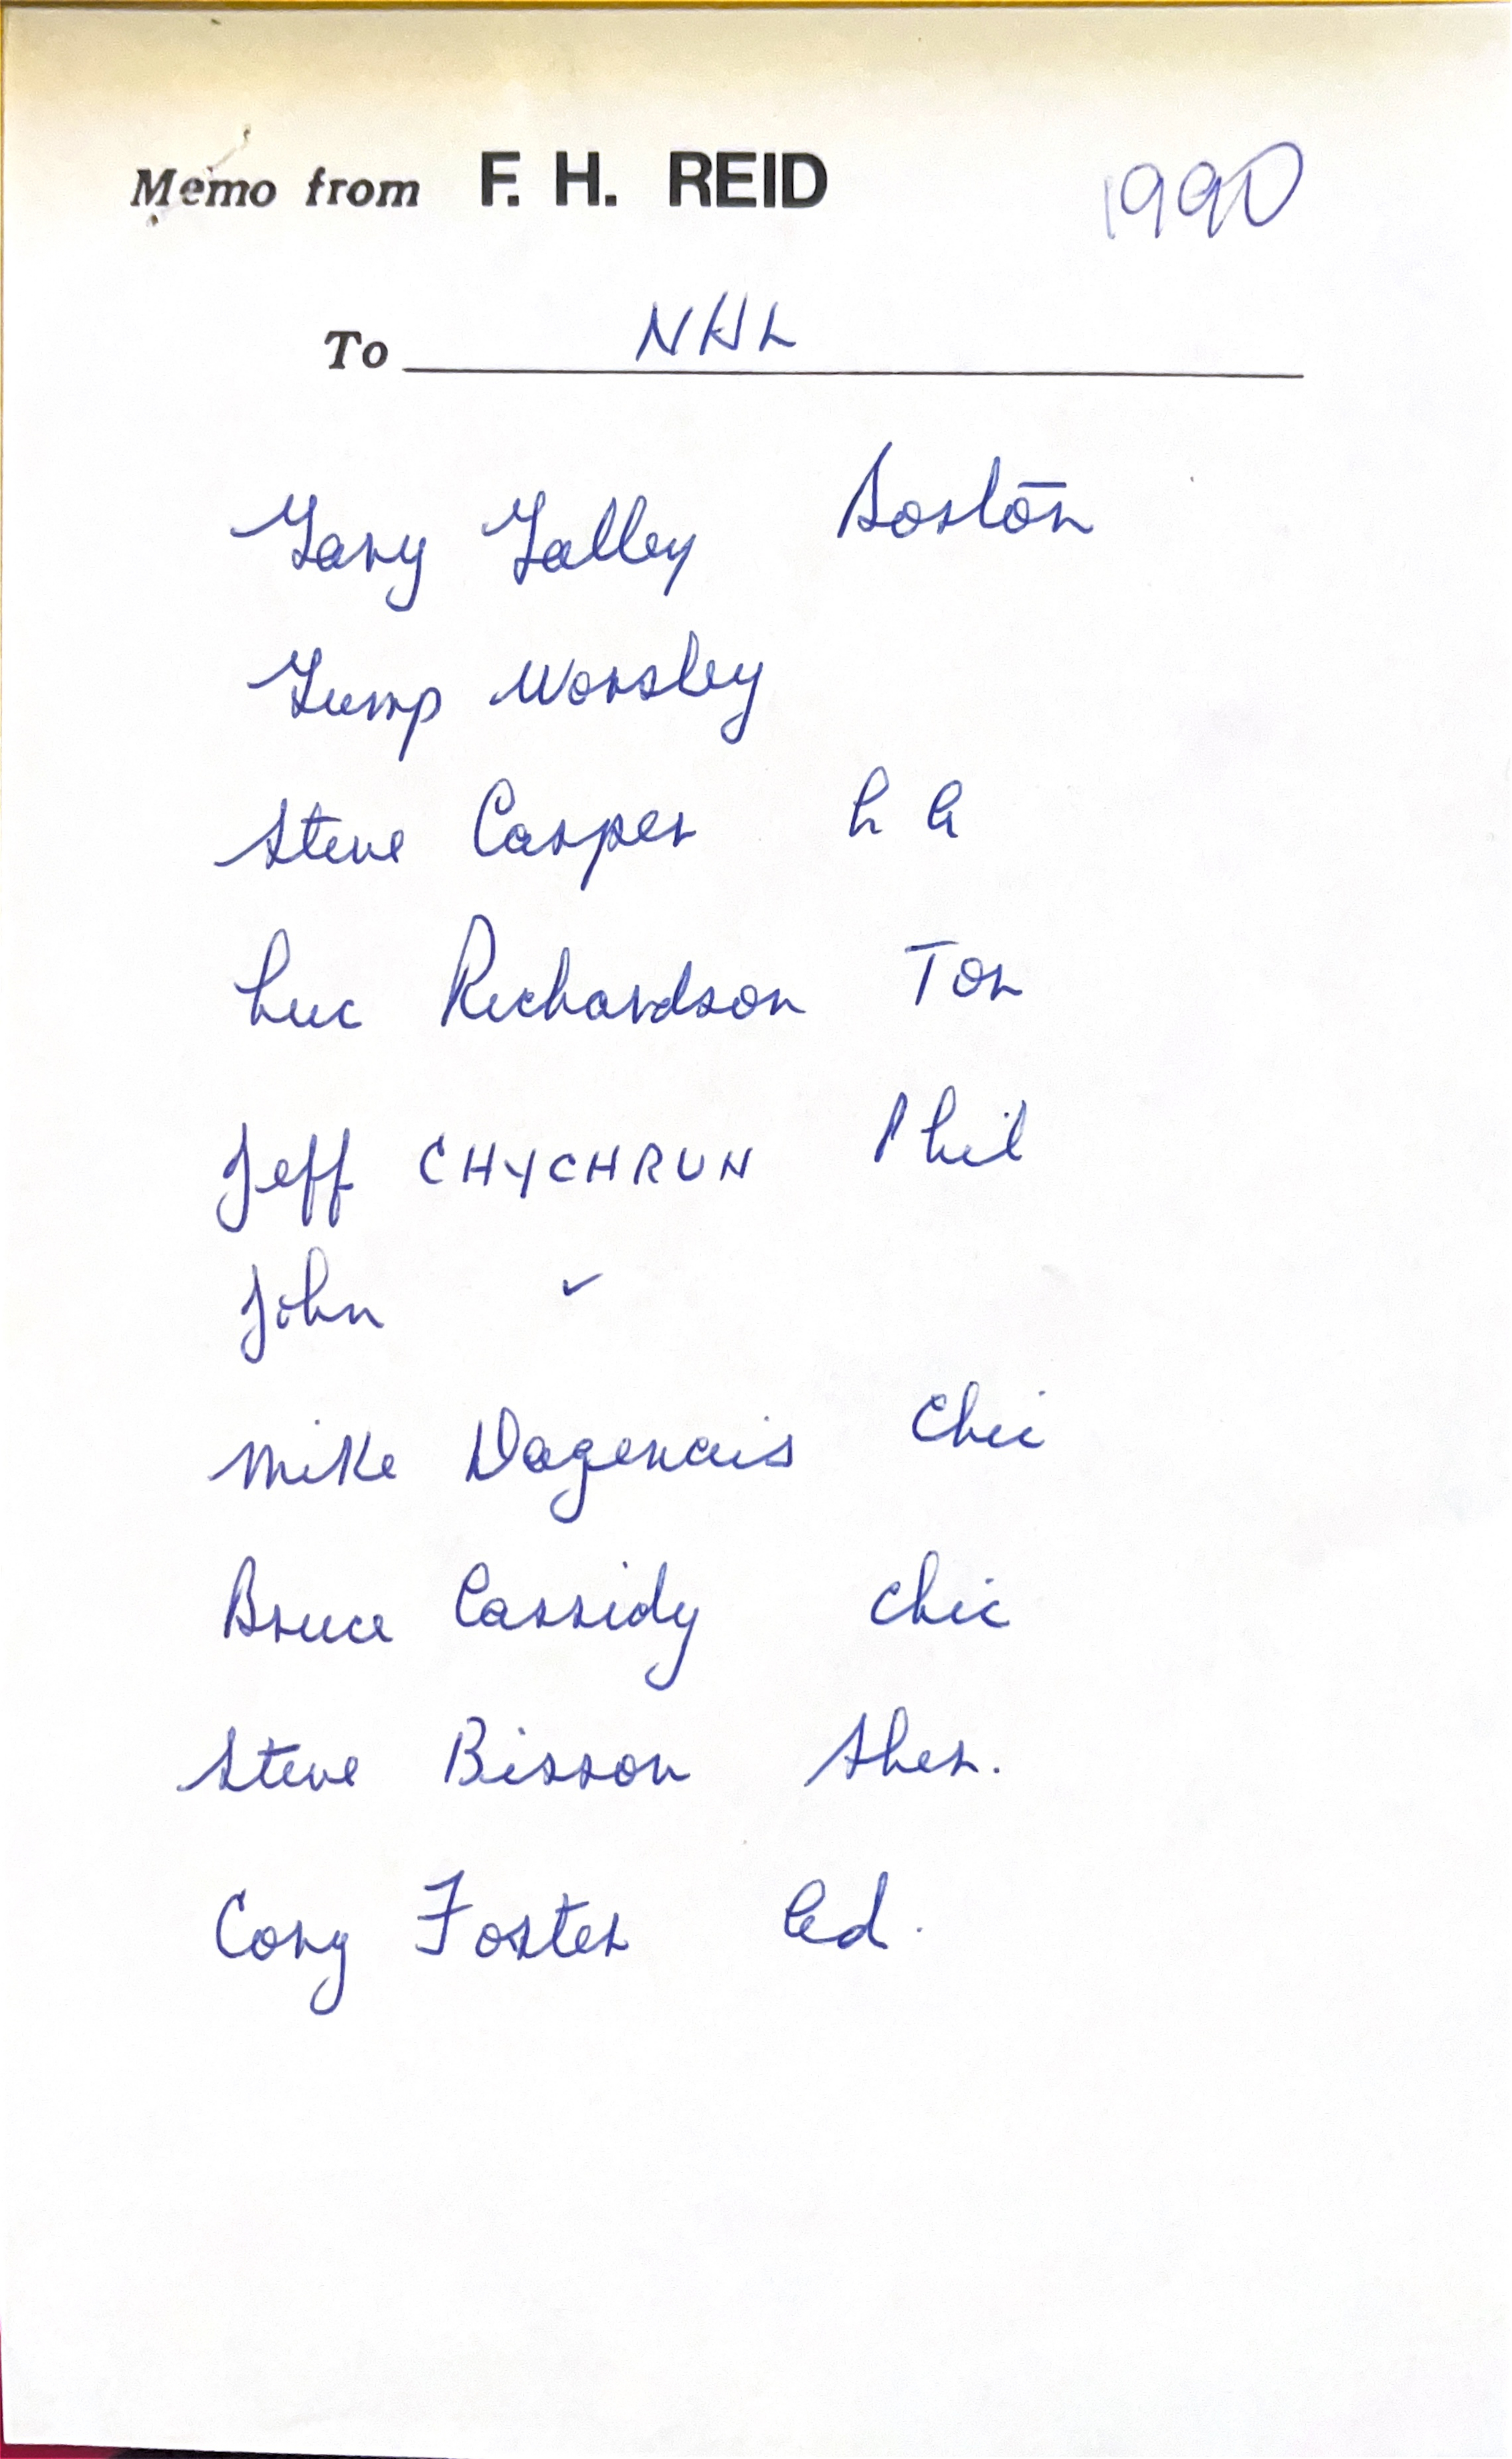 Memo from F. H. REID 1990
To NHL
Gary Galley Boston
Gump Worsley
Steve Casper L A
Luc Richardson Tor
Jeff CHYCHRUN Phil
John ✓
Mike Dagenais Chic
Bruce Cassidy Chic
Steve Bisson Sher.
Cory Foster Ed.